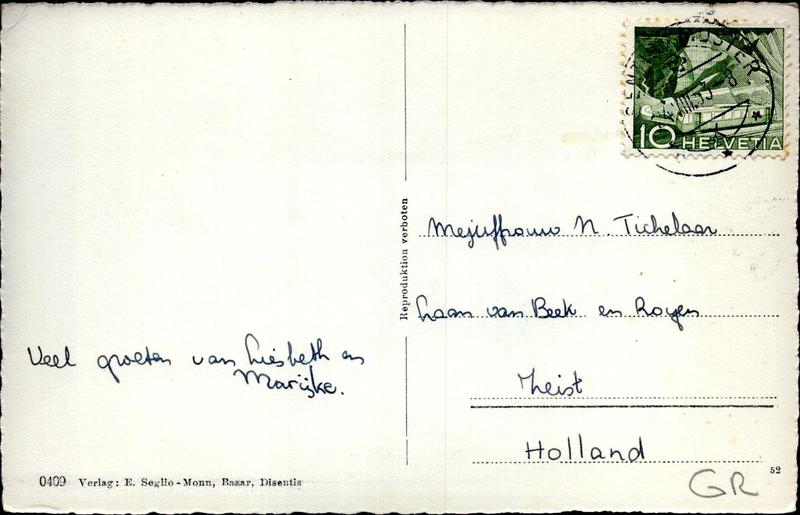 Veel groeten van Liesbeth en
Marijke.
0409 Verlag: E. Seglio-Monn, Bazar, Disentis
Reproduktion verboten
10 HELVETIA
Mejuffrouw N. Tichelaar
Laan van Beek en Royen
Zeist
Holland
52
GR